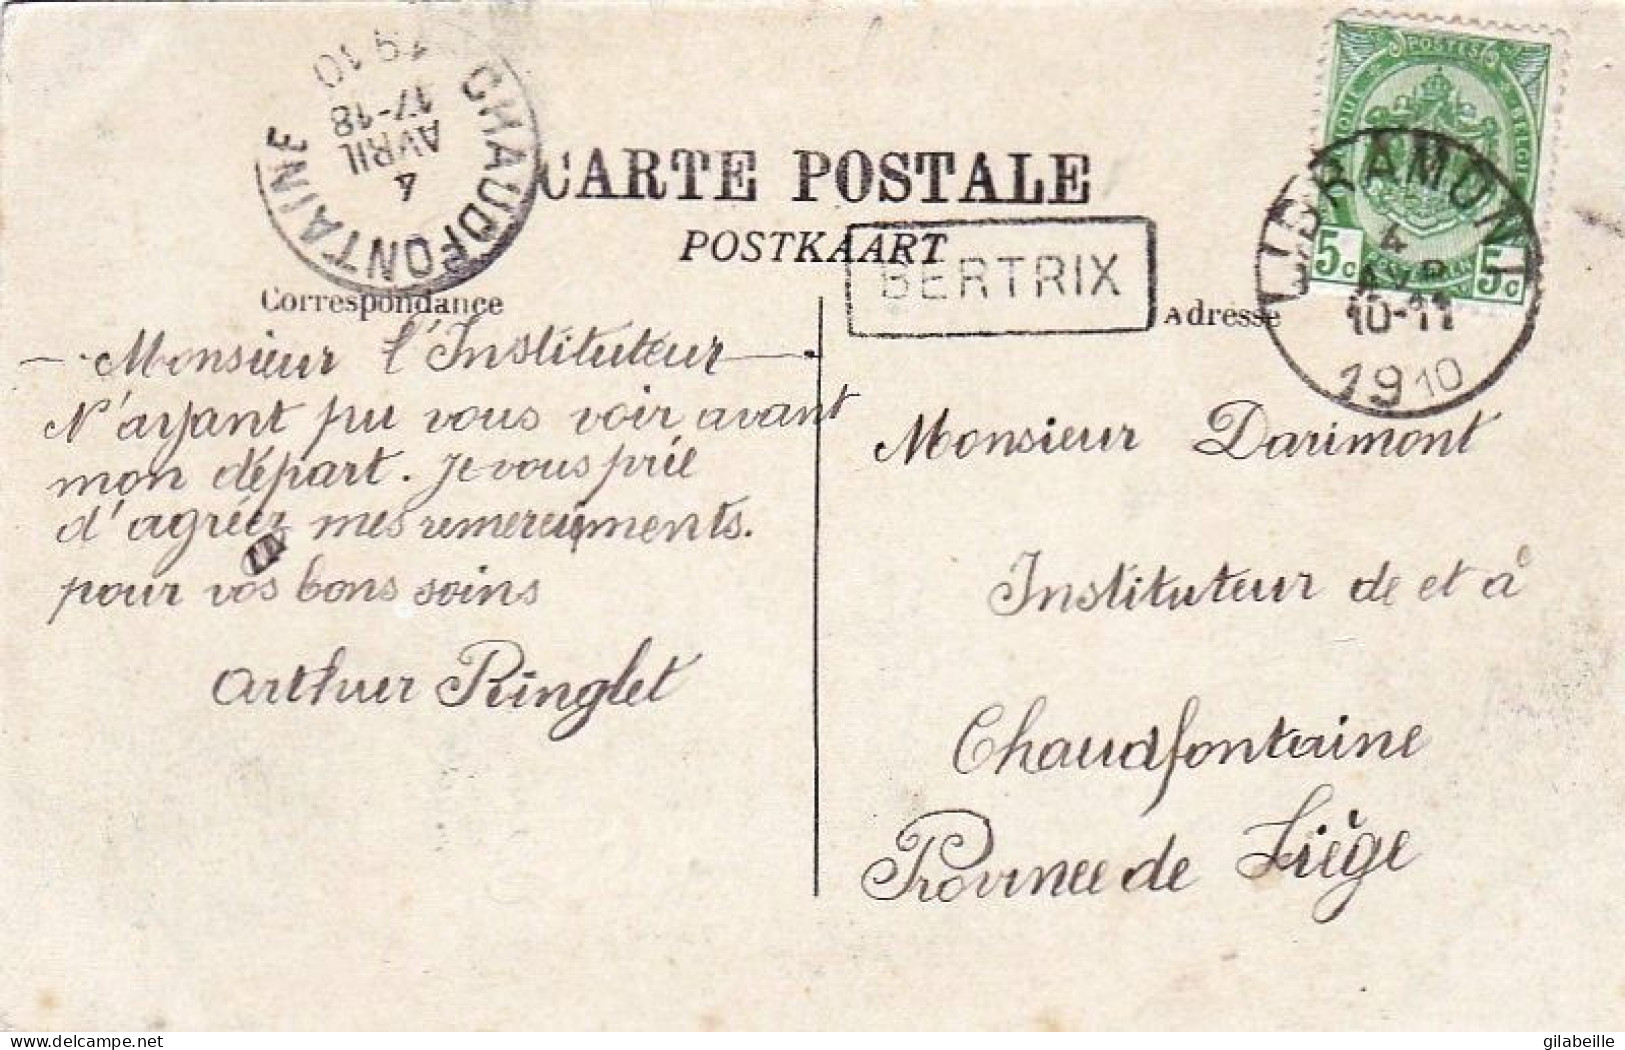 CHAUDFONTAINE
4
AVRIL
17-18
1910
CARTE POSTALE
POSTKAART
BERTRIX
POSTES
BELGIQUE
5c 5c
LIBRAMONT
4
AVR
10-11
1910
Correspondance
Adresse
Monsieur l'Instituteur
N'ayant pu vous voir avant
mon départ. Je vous prie
d'agréer mes remerciements.
pour vos bons soins
Arthur Ringlet
Monsieur Darimont
Instituteur de et à
Chaudfontaine
Province de Liège
delcampe.net
gilabeille